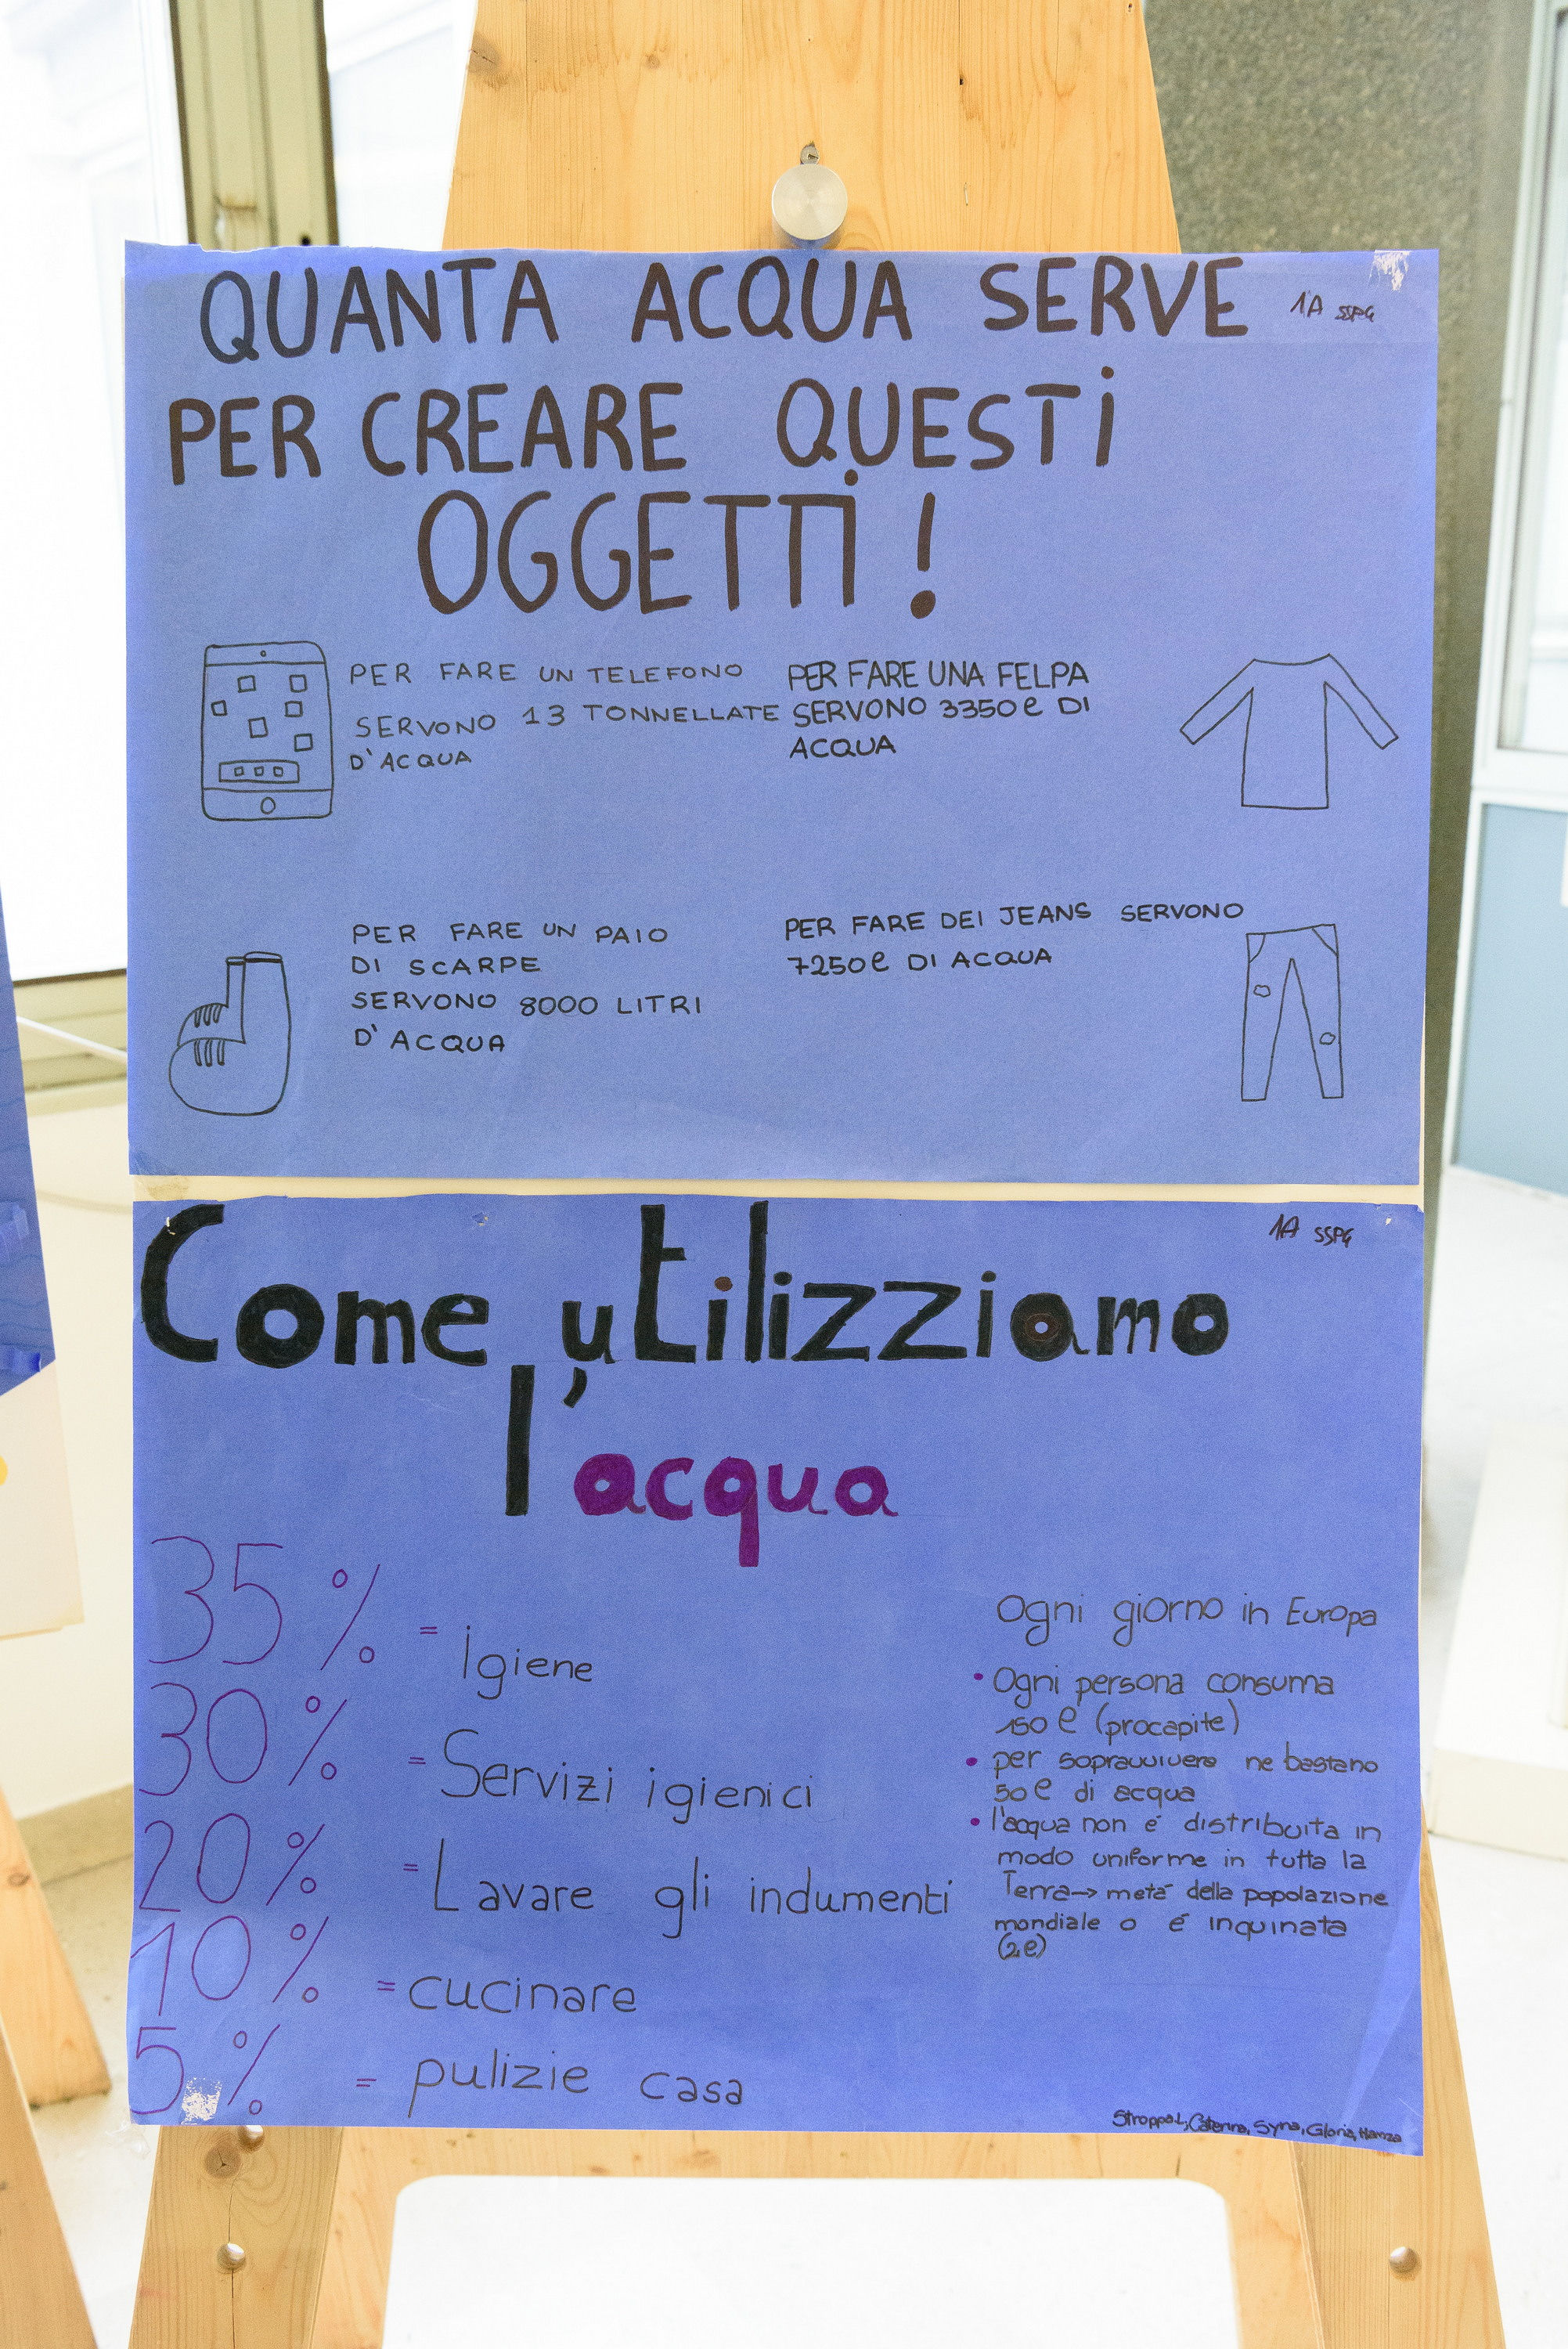 QUANTA ACQUA SERVE
1A SSPG
PER CREARE QUESTI
OGGETTI !
PER FARE UN TELEFONO
SERVONO 13 TONNELLATE
D'ACQUA
PER FARE UNA FELPA
SERVONO 3350 ℓ DI
ACQUA
PER FARE UN PAIO
DI SCARPE
SERVONO 8000 LITRI
D'ACQUA
PER FARE DEI JEANS SERVONO
7250 ℓ DI ACQUA
1A SSPG
Come utilizziamo
l'acqua
35% = Igiene
30% = Servizi igienici
20% = Lavare gli indumenti
10% = cucinare
5% = pulizie casa
Ogni giorno in Europa
• Ogni persona consuma
150 ℓ (procapite)
• per sopravvivere ne bastano
50 ℓ di acqua
• l'acqua non é distribuita in
modo uniforme in tutta la
Terra → metá della popolazione
mondiale o é inquinata
(2ℓ)
Stroppa L, Caterina, Syna, Gloria, Hamza